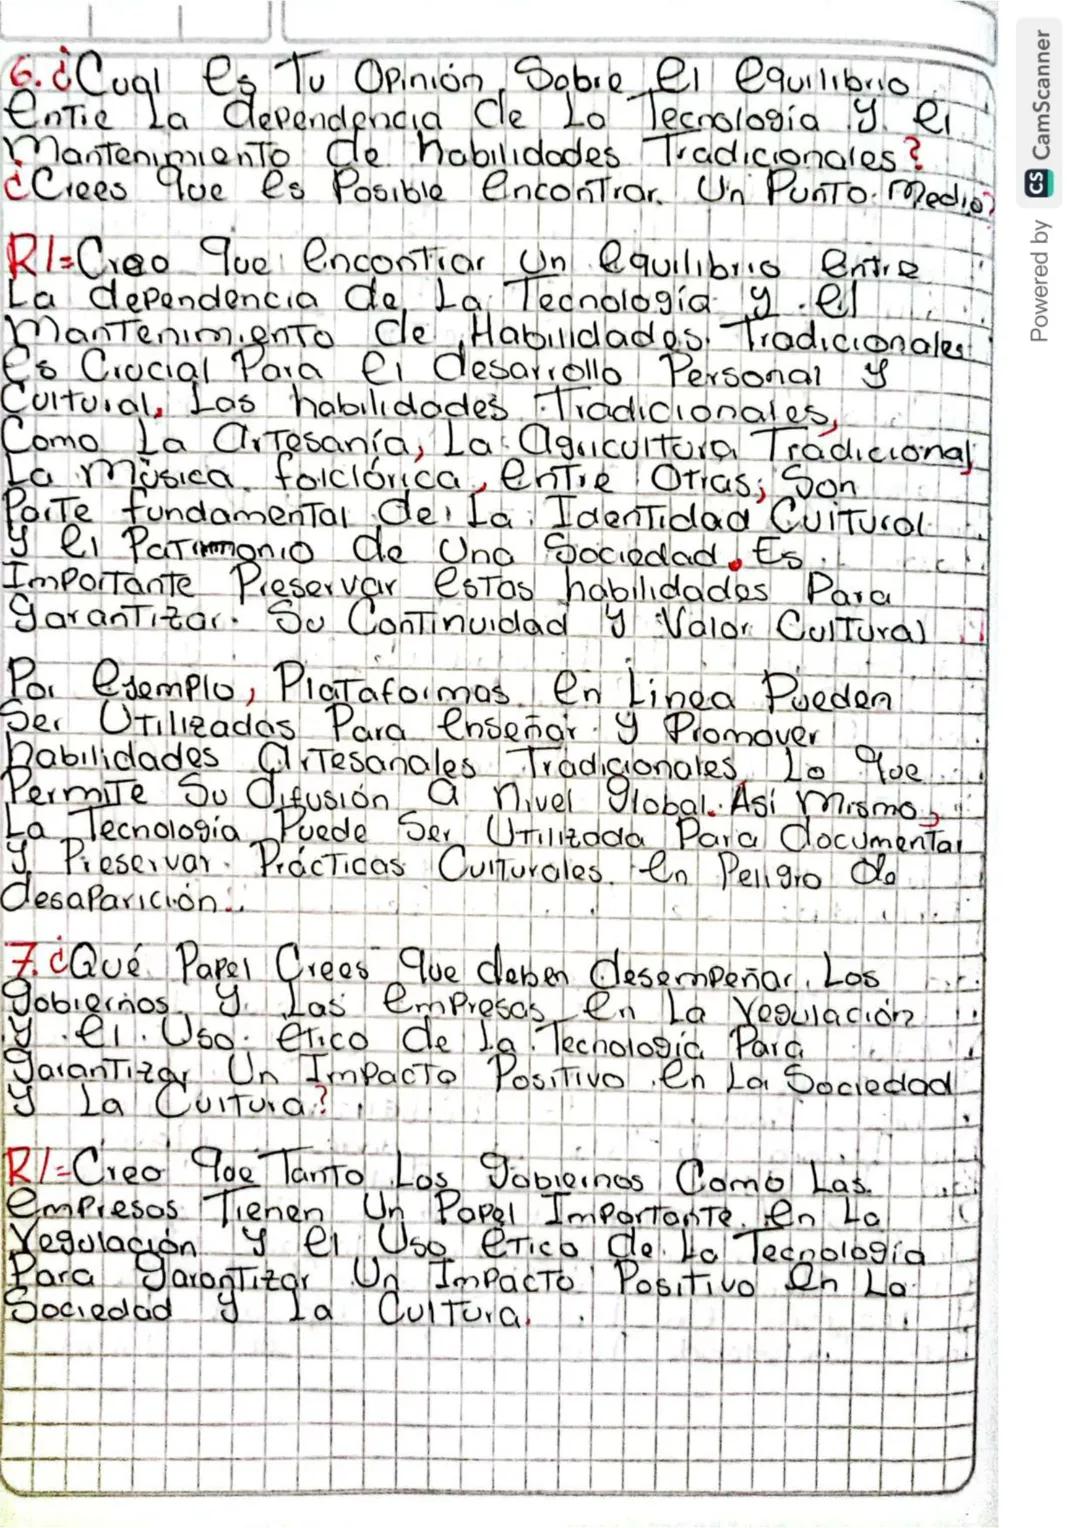 6. ¿Cual es Tu Opinión Sobre el equilibrio
entre La dependencia de La Tecnología y el
Mantenimiento de habilidades Tradicionales?
¿Crees que es Posible encontrar Un Punto Medio?
R/= Creo que encontrar un equilibrio entre
La dependencia de La Tecnología y el
Mantenimiento de Habilidades Tradicionales
es Crucial Para el desarrollo Personal y
Cultural. Las habilidades Tradicionales,
Como La artesanía, La agricultura Tradicional
La Música folclórica, entre Otras; Son
Parte fundamental de La Identidad Cultural
y el Patrimonio de una Sociedad. Es
Importante Preservar estas habilidades Para
garantizar Su Continuidad y Valor Cultural
Por ejemplo, Plataformas en Linea Pueden
Ser Utilizadas Para enseñar y Promover
habilidades artesanales Tradicionales Lo que
Permite Su difusión a nivel global. Así Mismo,
La Tecnología Puede Ser Utilizada Para documentar
y Preservar Prácticas Culturales en Peligro de
desaparición.
7. ¿Qué Papel Crees que deben desempeñar Los
gobiernos y Las empresas en La regulación
y el Uso etico de La Tecnología Para
garantizar Un Impacto Positivo en La Sociedad
y La Cultura?
R/= Creo que Tanto Los gobiernos Como Las
empresas Tienen Un Papel Importante en La
regulación y el Uso etico de La Tecnología
Para garantizar Un Impacto Positivo en La
Sociedad y La Cultura.
Powered by CS CamScanner